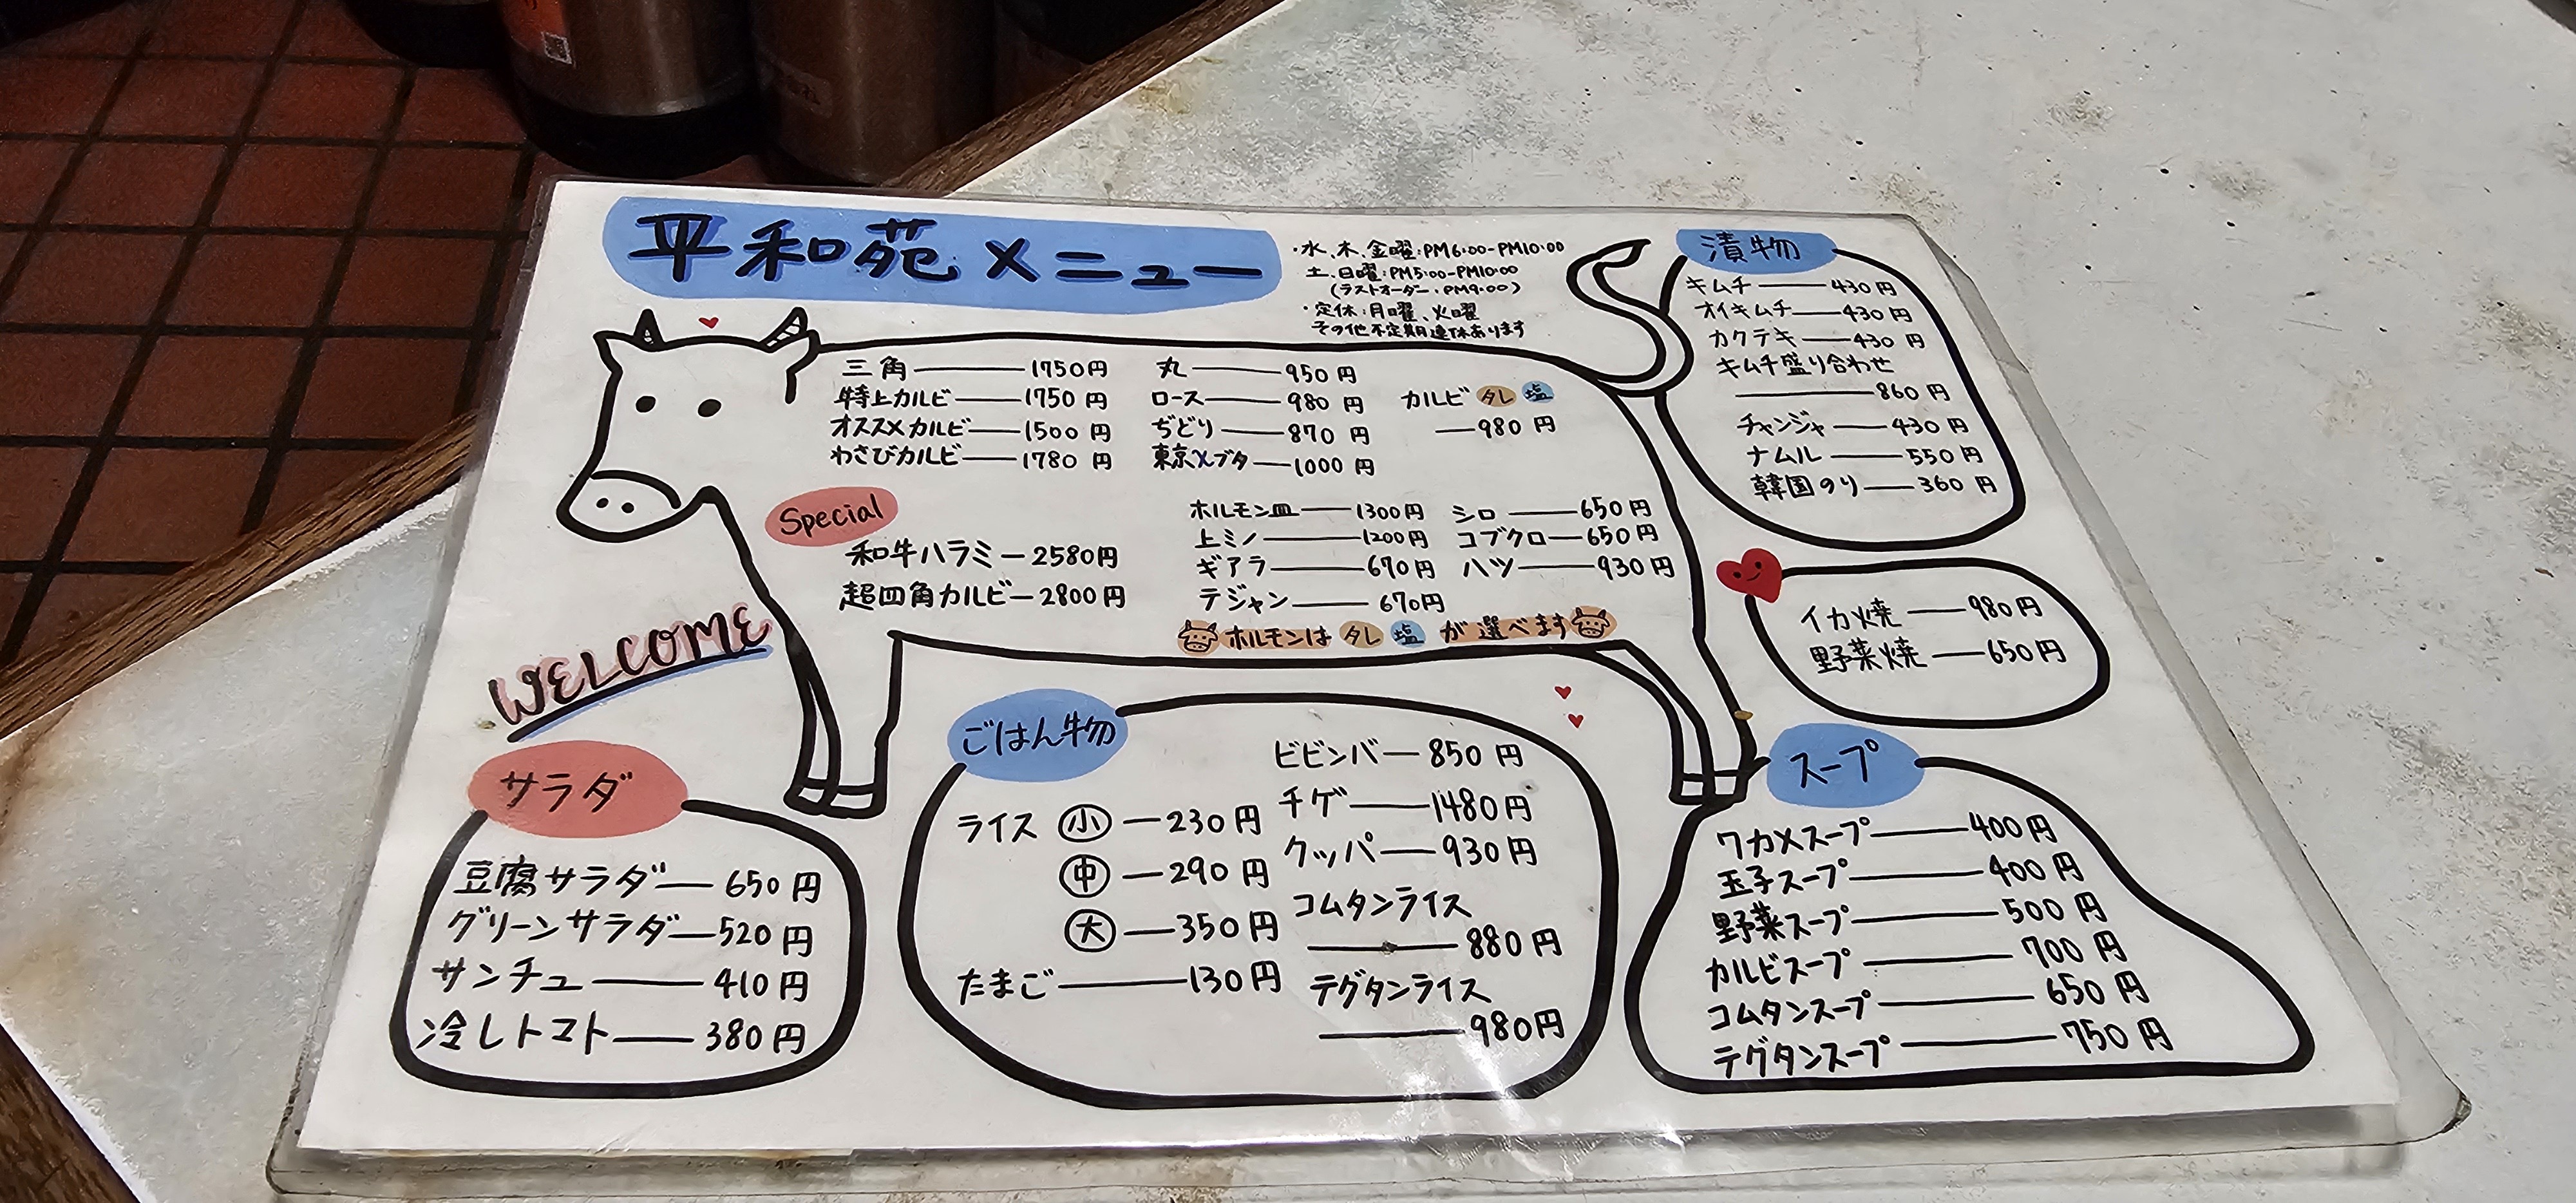 平和苑メニュー
・水、木、金曜:PM6:00-PM10:00
土、日曜:PM5:00-PM10:00
(ラストオーダー.PM9:00)
・定休:月曜、火曜
その他不定期連休あります
三角 1750円
特上カルビ 1750円
オススメカルビ 1500円
わさびカルビ 1780円
丸 950円
ロース 980円
ぢどり 870円
東京Xブタ 1000円
カルビ タレ 塩
980円
Special
和牛ハラミ 2580円
超四角カルビ 2800円
ホルモン皿 1300円
上ミノ 1200円
ギアラ 670円
テジャン 670円
シロ 650円
コブクロ 650円
ハツ 930円
ホルモンは タレ 塩 が選べます
漬物
キムチ 430円
オイキムチ 430円
カクテキ 430円
キムチ盛り合わせ
860円
チャンジャ 430円
ナムル 550円
韓国のり 360円
イカ焼 980円
野菜焼 650円
WELCOME
サラダ
豆腐サラダ 650円
グリーンサラダ 520円
サンチュ 410円
冷しトマト 380円
ごはん物
ライス 小 230円
中 290円
大 350円
たまご 130円
ビビンバ 850円
チゲ 1480円
クッパ 930円
コムタンライス
880円
テグタンライス
980円
スープ
ワカメスープ 400円
玉子スープ 400円
野菜スープ 500円
カルビスープ 700円
コムタンスープ 650円
テグタンスープ 750円